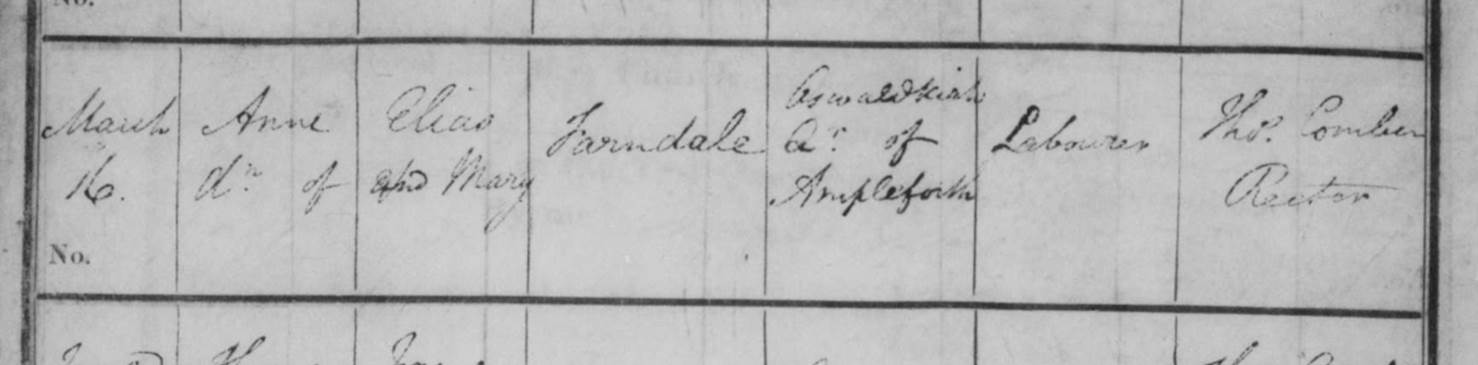 No.
March
16.
Anne
dr. of
Elias
and Mary
Farndale
Oswaldkirk
Qr. of
Ampleforth
Labourer
Thos. Comber
Rector
No.